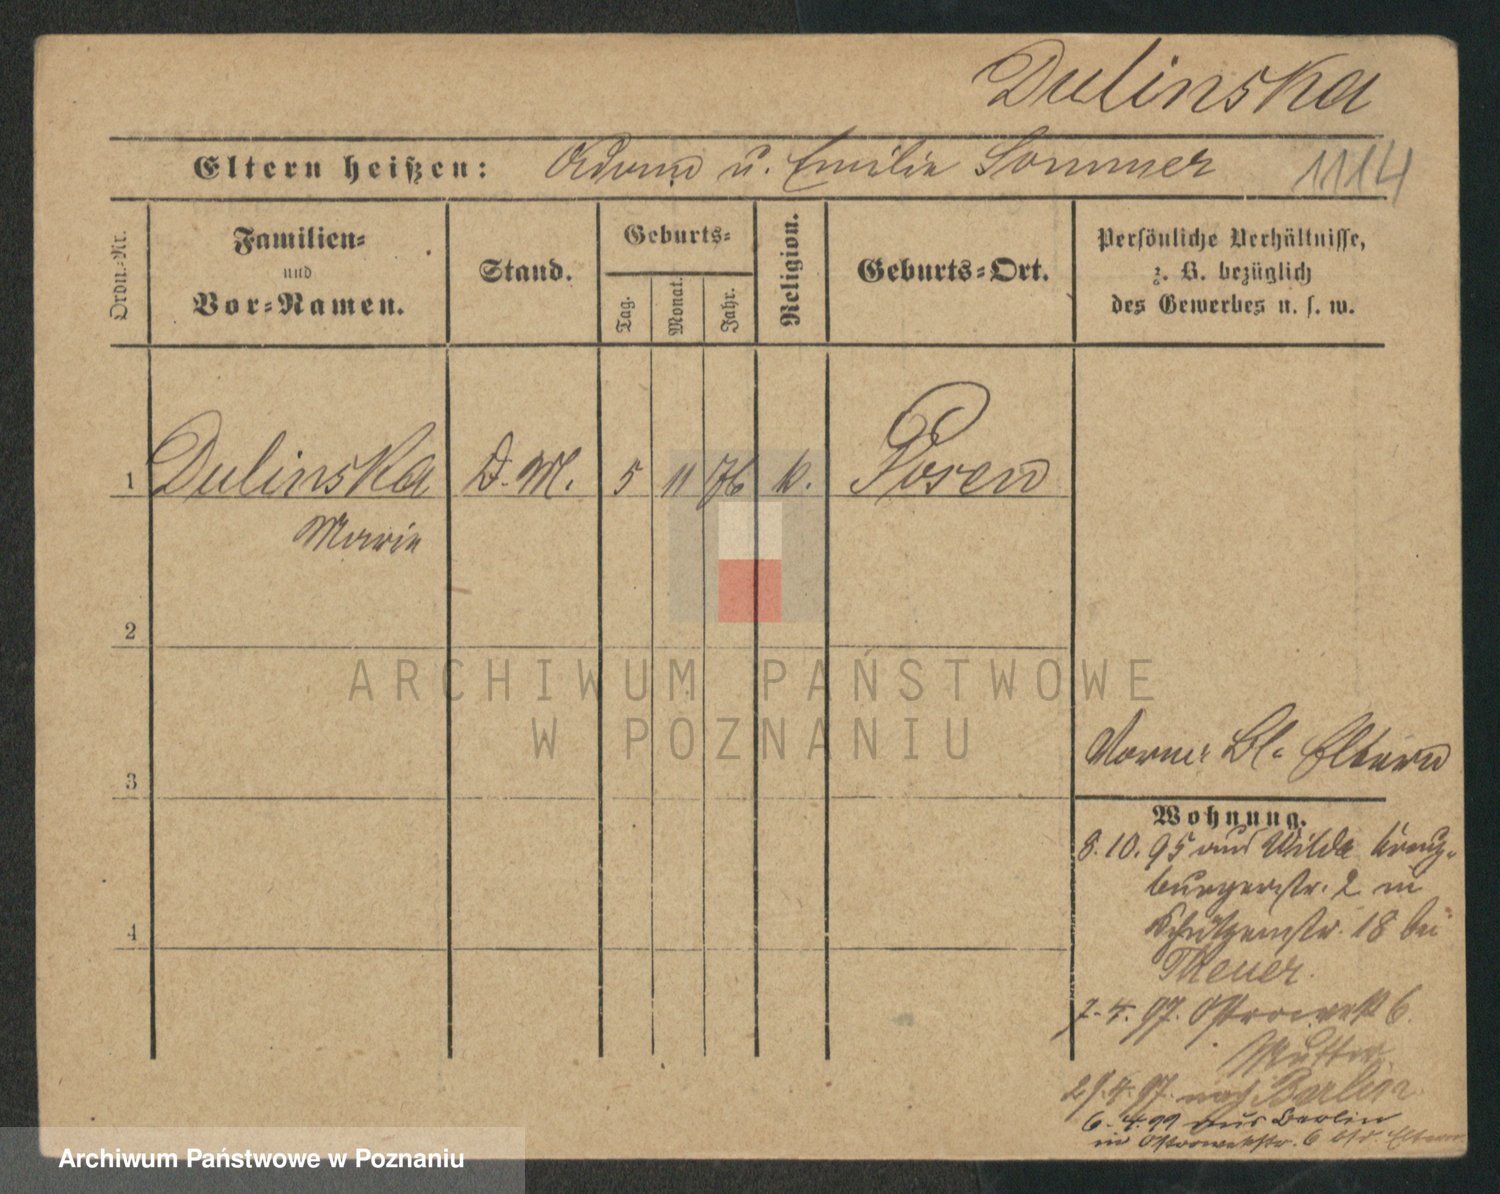 Dulinska
Eltern heißen: u. Emilie Sommer 1114
Ordn.-Nr.
Familien-
und
Vor-Namen.
Stand.
Geburts-
Tag.
Monat.
Jahr.
Religion.
Geburts-Ort.
Persönliche Verhältnisse,
z. B. bezüglich
des Gewerbes u. s. w.
1 Dulinska D. M. 5 11 76 k. Posen
Marie
2
3
4
Vorne: Bl. Eltern
Wohnung.
8.10.95 aus Wilda Kreuz-
burgerstr. 2 in
Schützenstr. 18 bei
Theuer.
7.4.97. Ostrowek 6.
Mutter.
29.4.97. nach Berlin
6.4.99 aus Berlin
in Ostrowekstr. 6 Eltern
ARCHIWUM PAŃSTWOWE
W POZNANIU
Archiwum Państwowe w Poznaniu